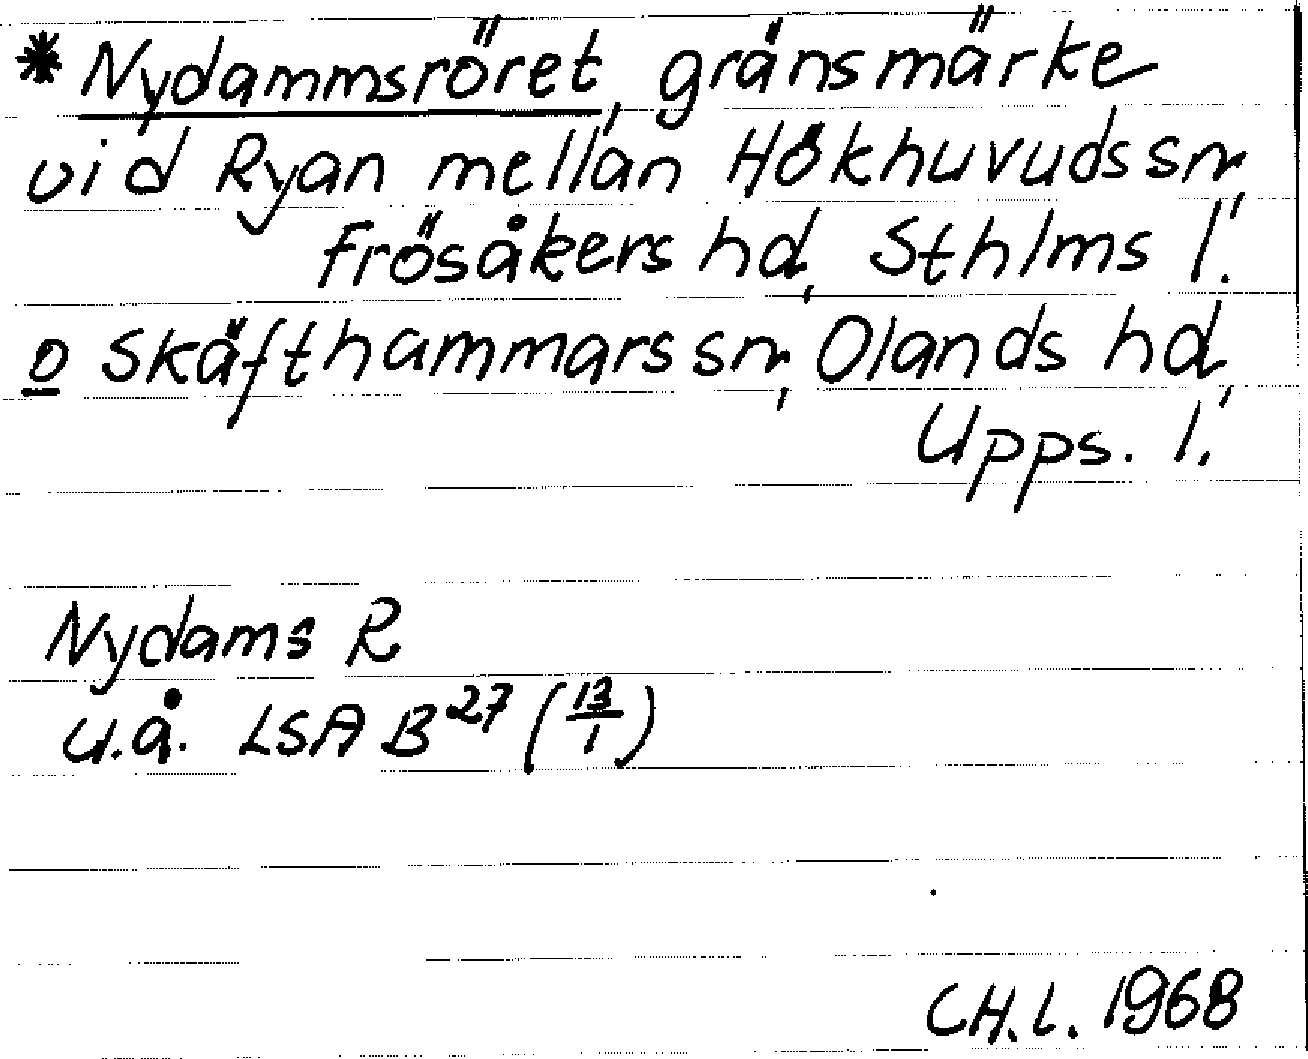 * Nydammsröret, gränsmärke
vid Ryan mellan Hökhuvuds sn,
Frösåkers hd, Sthlms l.
o Skäfthammars sn, Olands hd,
Upps. l.
Nydams R
u.å. LSA B27 (13/1)
CH.L. 1968